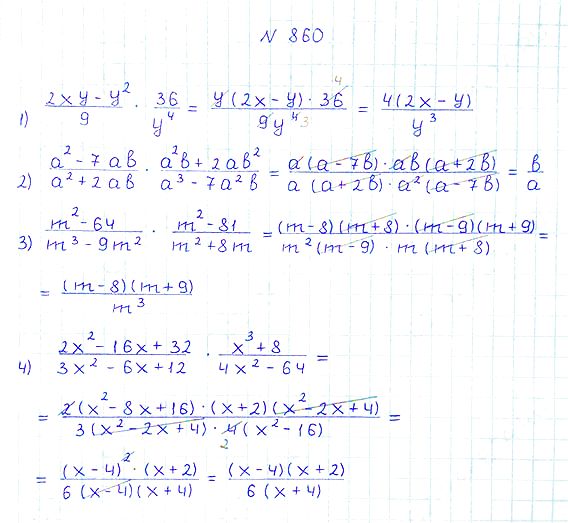 N 860
1) (2xy - y²)/9 · 36/y⁴ = (y(2x - y) · 36 4)/(9y⁴ 3) = (4(2x - y))/y³
2) (a² - 7ab)/(a² + 2ab) · (a²b + 2ab²)/(a³ - 7a²b) = (a(a - 7b) · ab(a + 2b))/(a(a + 2b) · a²(a - 7b)) = b/a
3) (m² - 64)/(m³ - 9m²) · (m² - 81)/(m² + 8m) = ((m - 8)(m + 8) · (m - 9)(m + 9))/(m²(m - 9) · m(m + 8)) =
= ((m - 8)(m + 9))/m³
4) (2x² - 16x + 32)/(3x² - 6x + 12) · (x³ + 8)/(4x² - 64) =
= (2(x² - 8x + 16) · (x + 2)(x² - 2x + 4))/(3(x² - 2x + 4) · 4 2(x² - 16)) =
= ((x - 4)² · (x + 2))/(6(x - 4)(x + 4)) = ((x - 4)(x + 2))/(6(x + 4))